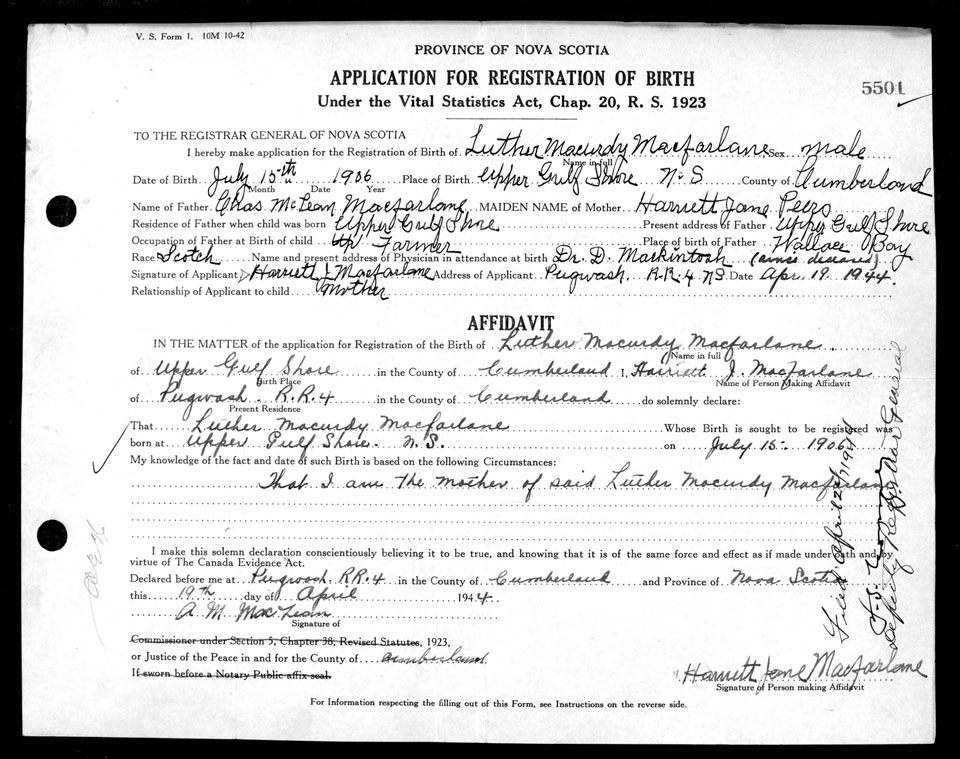 V. S. Form 1. 10M 10-42
PROVINCE OF NOVA SCOTIA
APPLICATION FOR REGISTRATION OF BIRTH
5501
Under the Vital Statistics Act, Chap. 20, R. S. 1923
TO THE REGISTRAR GENERAL OF NOVA SCOTIA
I hereby make application for the Registration of Birth of Luther Macurdy Macfarlane Sex male
Name in full
Date of Birth July 15th 1906 Place of Birth Upper Gulf Shore N.S County of Cumberland
Month Date Year
Name of Father Chas. McLean Macfarlane MAIDEN NAME of Mother Harriett Jane Peers
Residence of Father when child was born Upper Gulf Shore Present address of Father Upper Gulf Shore
Occupation of Father at Birth of child Farmer Place of birth of Father Wallace Bay
Race Scotch Name and present address of Physician in attendance at birth Dr. D. Mackintosh (since deceased)
Signature of Applicant Harriett J. Macfarlane Address of Applicant Pugwash R.R. 4 N.S. Date Apr. 19. 1944.
Relationship of Applicant to child Mother
AFFIDAVIT
IN THE MATTER of the application for Registration of the Birth of Luther Macurdy Macfarlane
Name in full
of Upper Gulf Shore in the County of Cumberland I, Harriett J. MacFarlane
Birth Place Name of Person Making Affidavit
of Pugwash R.R. 4 in the County of Cumberland do solemnly declare:
Present Residence
That Luther Macurdy Macfarlane Whose Birth is sought to be registered was
born at Upper Gulf Shore. N.S. on July 15. 1906
My knowledge of the fact and date of such Birth is based on the following Circumstances:
That I am the mother of said Luther Macurdy Macfarlane
I make this solemn declaration conscientiously believing it to be true, and knowing that it is of the same force and effect as if made under oath and by
virtue of The Canada Evidence Act.
Declared before me at Pugwash. R.R. 4 in the County of Cumberland and Province of Nova Scotia
this 19th day of April 1944
A. M. MacLean
Signature of
Commissioner under Section 5, Chapter 38, Revised Statutes, 1923,
or Justice of the Peace in and for the County of Cumberland
If sworn before a Notary Public affix seal.
Harriett Jane Macfarlane
Signature of Person making Affidavit
For Information respecting the filling out of this Form, see Instructions on the reverse side.
Filed April 24 1944
Deputy Registrar General